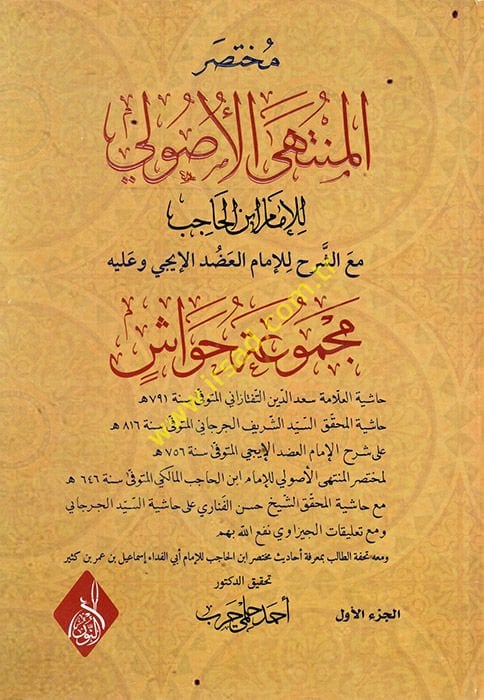 مُختصَر
المُنتَهَى الأُصُولي
لِلإمَام ابن الحَاجِب
مَعَ الشَّرح لِلإمَام العَضُد الإيجي وعَليه
مَجمُوعَة حَوَاشٍ
حاشية العلّامة سعد الدّين التفتازاني المتوفى سنة ٧٩١ هـ
حاشية المحقق السيّد الشريف الجرجاني المتوفى سنة ٨١٦ هـ
على شرح الإمام العضد الإيجي المتوفى سنة ٧٥٦ هـ
لمختصر المنتهى الأصولي للإمام ابن الحاجب المالكي المتوفى سنة ٦٤٦ هـ
مع حاشية المحقق الشيخ حسن الفناري على حاشية السيّد الجرجاني
ومع تعليقات الجيزاوي نفع الله بهم
ومعه تحفة الطالب بمعرفة أحاديث مختصر ابن الحاجب للإمام أبي الفداء إسماعيل بن عمر بن كثير
تحقيق الدكتور
أحمد حلمي حرب
الجزء الأول
النور
www.irsad.com.tr